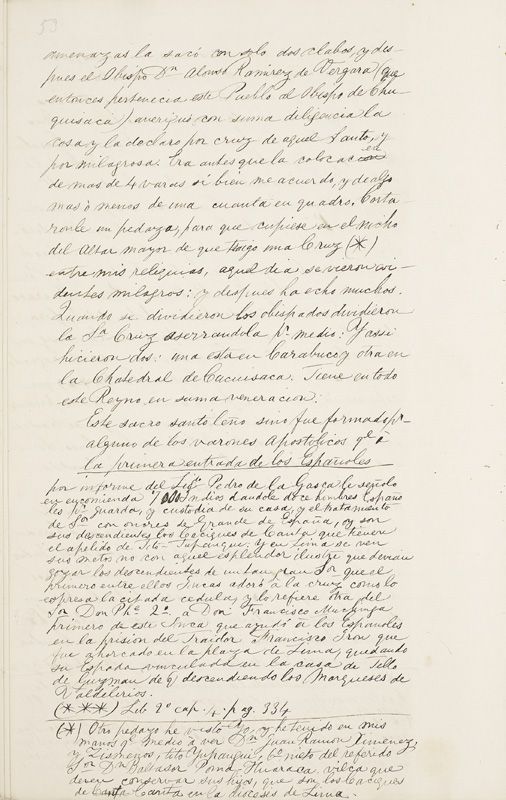 53
amenazas la sacó con solo dos clabos, y des-
pues el Obispo Dn Alonso Ramirez de Vergara (que
entonces pertenecia este Pueblo al Obispo de Chu-
quisaca) averiguó con suma diligencia la
cosa y la declaro por cruz de aquel Santo, y
por milagrosa. Era antes que la colocacen
de mas de 4 varas si bien me acuerdo, y de algo
mas ó menos de una cuarta en quadro. Corta-
ronle un pedazo, para que cupiese en el nicho
del Altar mayor de que tengo una Cruz (*)
entre mis reliquias, aquel dia se vieron evi-
dentes milagros: y despues ha echo muchos.
Quando se dividieron los obispados dividieron
la Sta Cruz aserrandola pr medio: Y assi
hicieron dos: una esta en Carabuco, y otra en
la Chatedral de Cacuisaca. Tiene en todo
este Reyno en suma veneracion.
Este sacro santo leño sino fue formado pr
alguno de los varones Apostolicos qe á
la primera entrada de los Españoles
por informe del Lidº Pedro de la Gasca le señalo
en encomienda 1000 Indios dandole doce hombres Españo-
les pa guarda, y custodia de su casa, y el tratamiento
de Sor con onores de Grande de España, oy son
sus descendientes los Caciques de Canta que tienen
el apelido de Tito-Yupanqui. Y en Lima se ven
sus nietos no con aquel esplendor ilustre que devian
gozar los descendientes de un tan gran Sor que el
primero entre ellos Incas adoró a la cruz como lo
espresa la citada cedula, y lo refiere otra del
Sor Don Phe 2º a Don Francisco
primero de este Inca que ayudó á los Españoles
en la prision del Traidor Francisco Iron que
fue ahorcado en la plaza de Lima, quedando
su Espada vinculada en la casa de Tello
de Guzman de qe descendiendo los Marqueses de
Valdelirios.
(***) Lib 2º cap. 4. pag. 334
(*) Otro pedazo he visto Yo, y he tenido en mis
manos qe medio á ver Dn Juan Ramon Ximenez,
y tito Yupanqui, 6º nieto del referido
Sor Dn Baltasor Poma-Huaraca, vilca que
deven conservar sus hijos, que son los Caciques
de Canta en la dioceses de Lima.